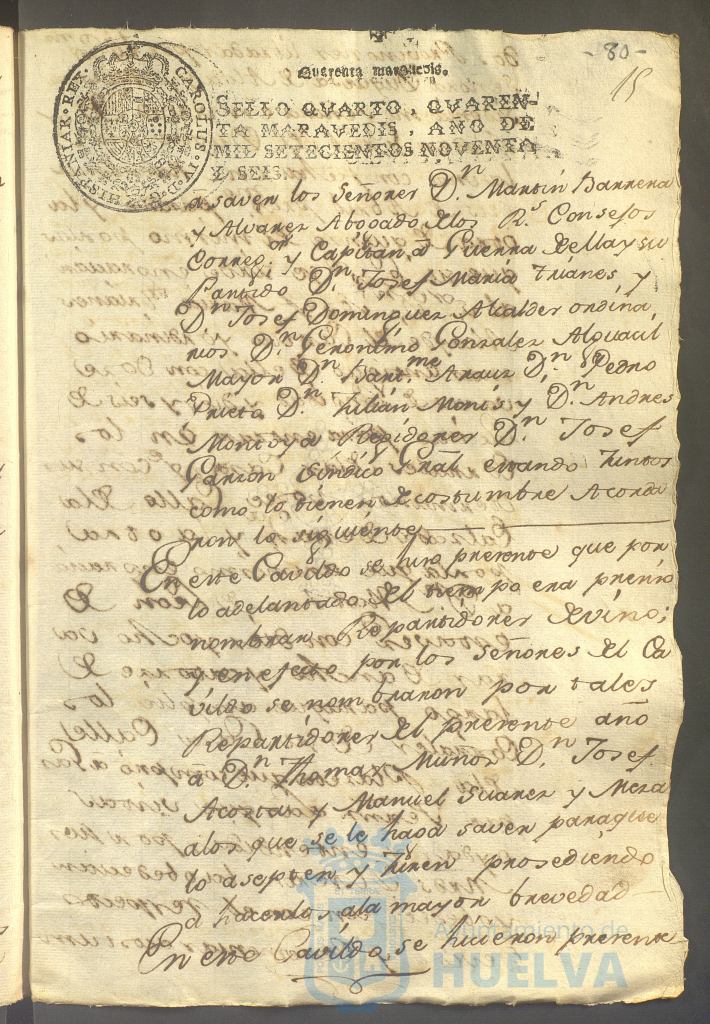 -80-
15
Quarenta maravedis.
CAROLUS IV D.G. HISPANIAR. REX.
SELLO QVARTO, QVAREN-
TA MARAVEDIS, AÑO DE
MIL SETECIENTOS NOVENTA
Y SEIS.
a saver los Señores Dn. Martin Barrera
y Alvarez Abogado de los Rs. Consejos
Correg.or y Capitan a Guerra de ella y su
Partido Dn. Josef Maria Trianes, y
Dn. Josef Dominguez Alcaldes ordina
rios Dn. Geronimo Gonzalez Alguacil
Mayor Dn. Bart.me Arauz Dn. Pedro
Prieto Dn. Julián Monis y Dn. Andres
Montoya Regidores Dn. Josef
Garzon Sindico Gral estando Juntos
como lo tienen de costumbre Acorda
ron lo siguiente
En este Cavildo se hizo presente que por
lo adelantado del tiempo era presiso
nombrar Repartidores de vino;
y en efecto por los Señores del Ca
vildo se nombraron por tales
Repartidores del presente año
a Dn. Thomas Muños Dn. Josef
Acosta y Manuel Suarez y Meza
a los que se le haga saver para que
lo asepten y Juren prosediendo
a hacerlo a la mayor brevedad
En este Cavildo se hicieron presente
Ayuntamiento de
HUELVA